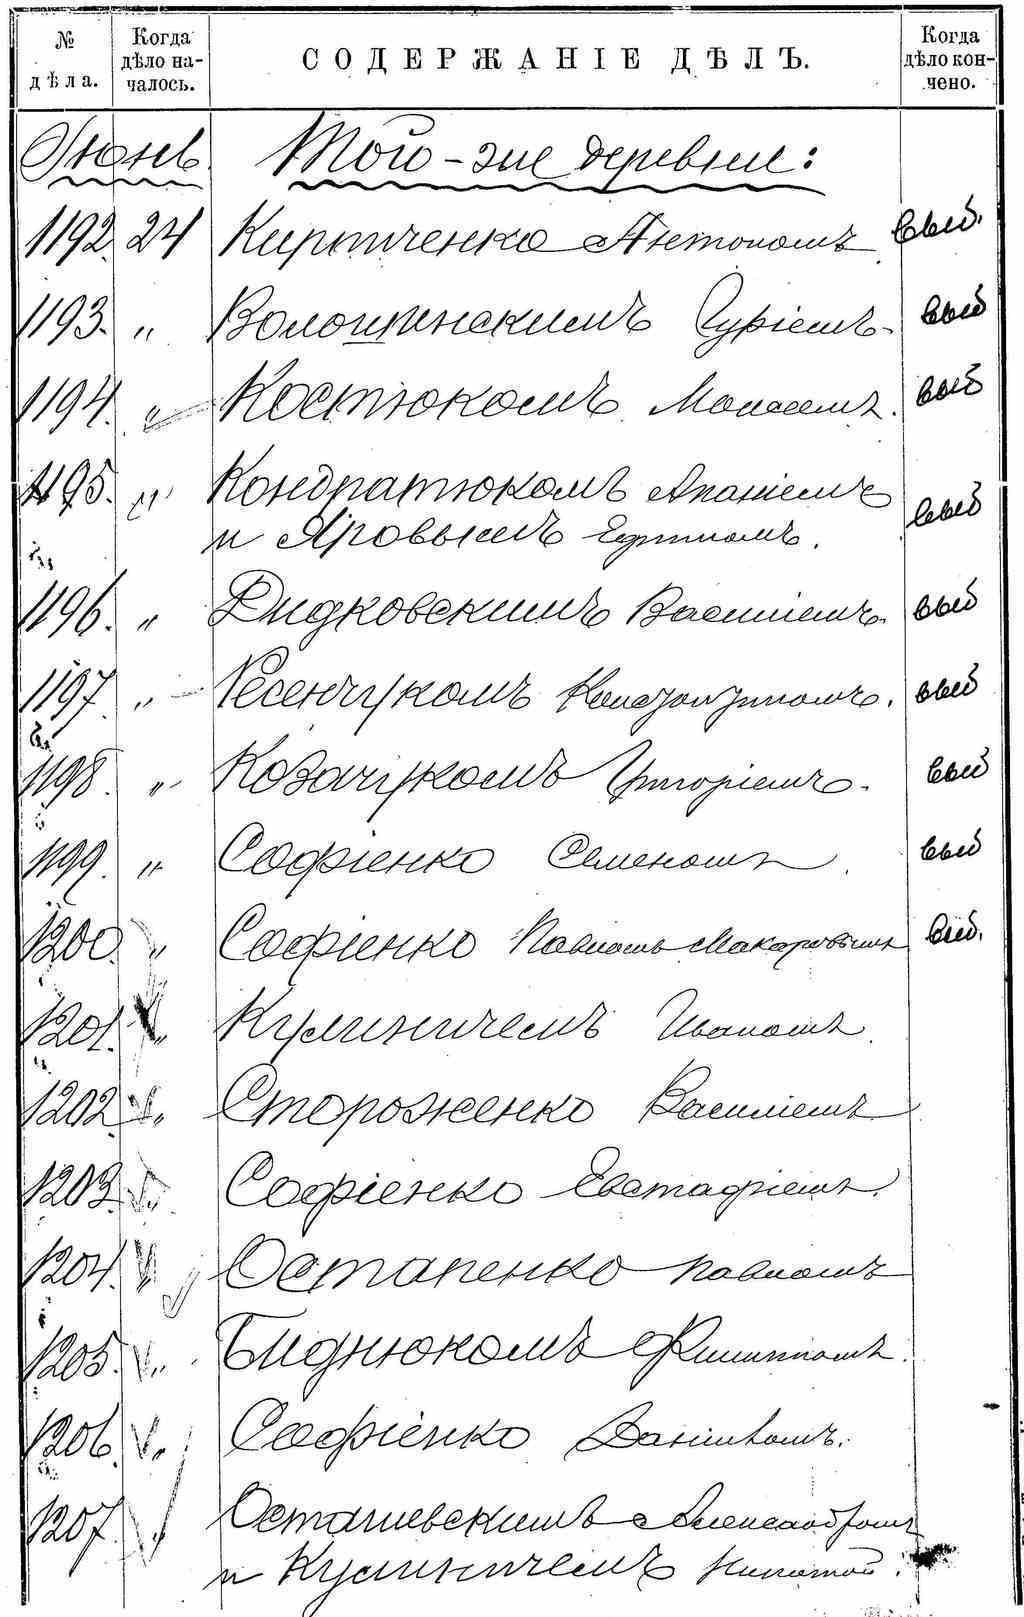 № дѣла. Когда дѣло началось. СОДЕРЖАНІЕ ДѢЛЪ. Когда дѣло кончено.
Іюнь. Той-же деревни:
1192. 24 Кирпиченко Антономъ выб.
1193. " Волошинскимъ Гуріемъ. выб
1194. " Костюкомъ Моисеемъ. выб
1195. " Кондратюкомъ Ананіемъ
и Яровымъ Ефимомъ. выб
1196. " Дидковскимъ Василіемъ. выб
1197. " Ресенчукомъ выб
1198. " Козачукомъ Григоріемъ. выб
1199. " Софіенко Семеномъ. выб
1200. " Софіенко Павломъ Макаровымъ выб.
1201. " Кулиничемъ Иваномъ.
1202. " Стороженко Василіемъ
1203. " Софіенко Евстафіемъ.
1204. " Остапенко Павломъ
1205. " Биднюкомъ Филиппомъ.
1206. " Софіенко Даніиломъ.
1207. " Осташевскимъ Александромъ
и Кулиничемъ Никитой.